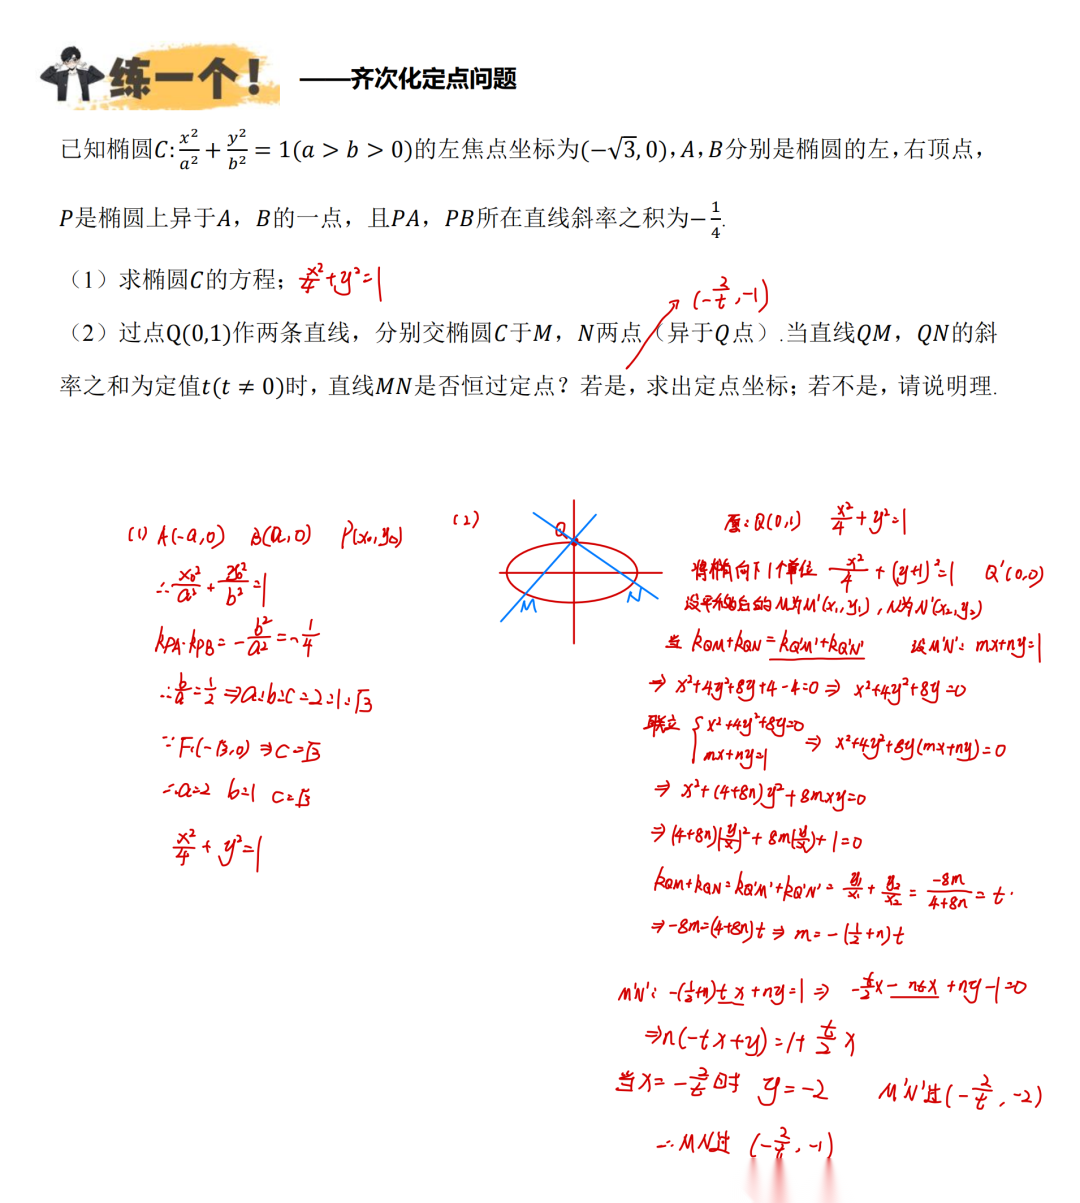 练一个！ ——齐次化定点问题
已知椭圆C:x²/a²+y²/b²=1(a>b>0)的左焦点坐标为(−√3,0),A,B分别是椭圆的左,右顶点，
P是椭圆上异于A，B的一点，且PA，PB所在直线斜率之积为−1/4.
（1）求椭圆C的方程； x²/4+y²=1
(-2/t,-1)
（2）过点Q(0,1)作两条直线，分别交椭圆C于M，N两点（异于Q点）.当直线QM，QN的斜
率之和为定值t(t≠0)时，直线MN是否恒过定点？若是，求出定点坐标；若不是，请说明理.
(1) A(-a,0) B(a,0) P(x₀,y₀)
∴x₀²/a²+y₀²/b²=1
kPA·kPB=-b²/a²=-1/4
∴b/a=1/2⇒a:b:c=2:1:√3
∵F₁(-√3,0)⇒c=√3
∴a=2 b=1 c=√3
x²/4+y²=1
(2)
Q
M
N
原:Q(0,1) x²/4+y²=1
将椭圆向下1个单位 x²/4+(y+1)²=1 Q'(0,0)
设平移后的M为M'(x₁,y₁),N为N'(x₂,y₂)
kQM+kQN=kQ'M'+kQ'N' 设M'N':mx+ny=1
⇒x²+4y²+8y+4-4=0⇒x²+4y²+8y=0
联立{x²+4y²+8y=0
mx+ny=1 ⇒x²+4y²+8y(mx+ny)=0
⇒x²+(4+8n)y²+8mxy=0
⇒(4+8n)(y/x)²+8m(y/x)+1=0
kQM+kQN=kQ'M'+kQ'N'=y₁/x₁+y₂/x₂=-8m/(4+8n)=t.
⇒-8m=(4+8n)t⇒m=-(1/2+n)t
M'N':-(1/2+n)tx+ny=1⇒-t/2x-ntx+ny-1=0
⇒n(-tx+y)=1+t/2x
当x=-2/t时 y=-2 M'N'过(-2/t,-2)
∴MN过(-2/t,-1)